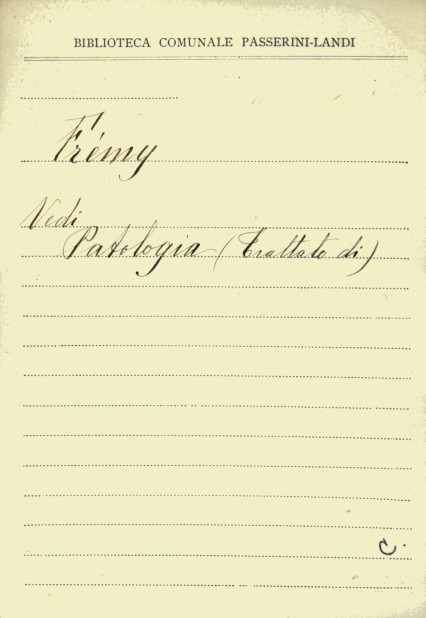 BIBLIOTECA COMUNALE PASSERINI-LANDI
Frémy
Vedi
Patologia (Trattato di)
C.